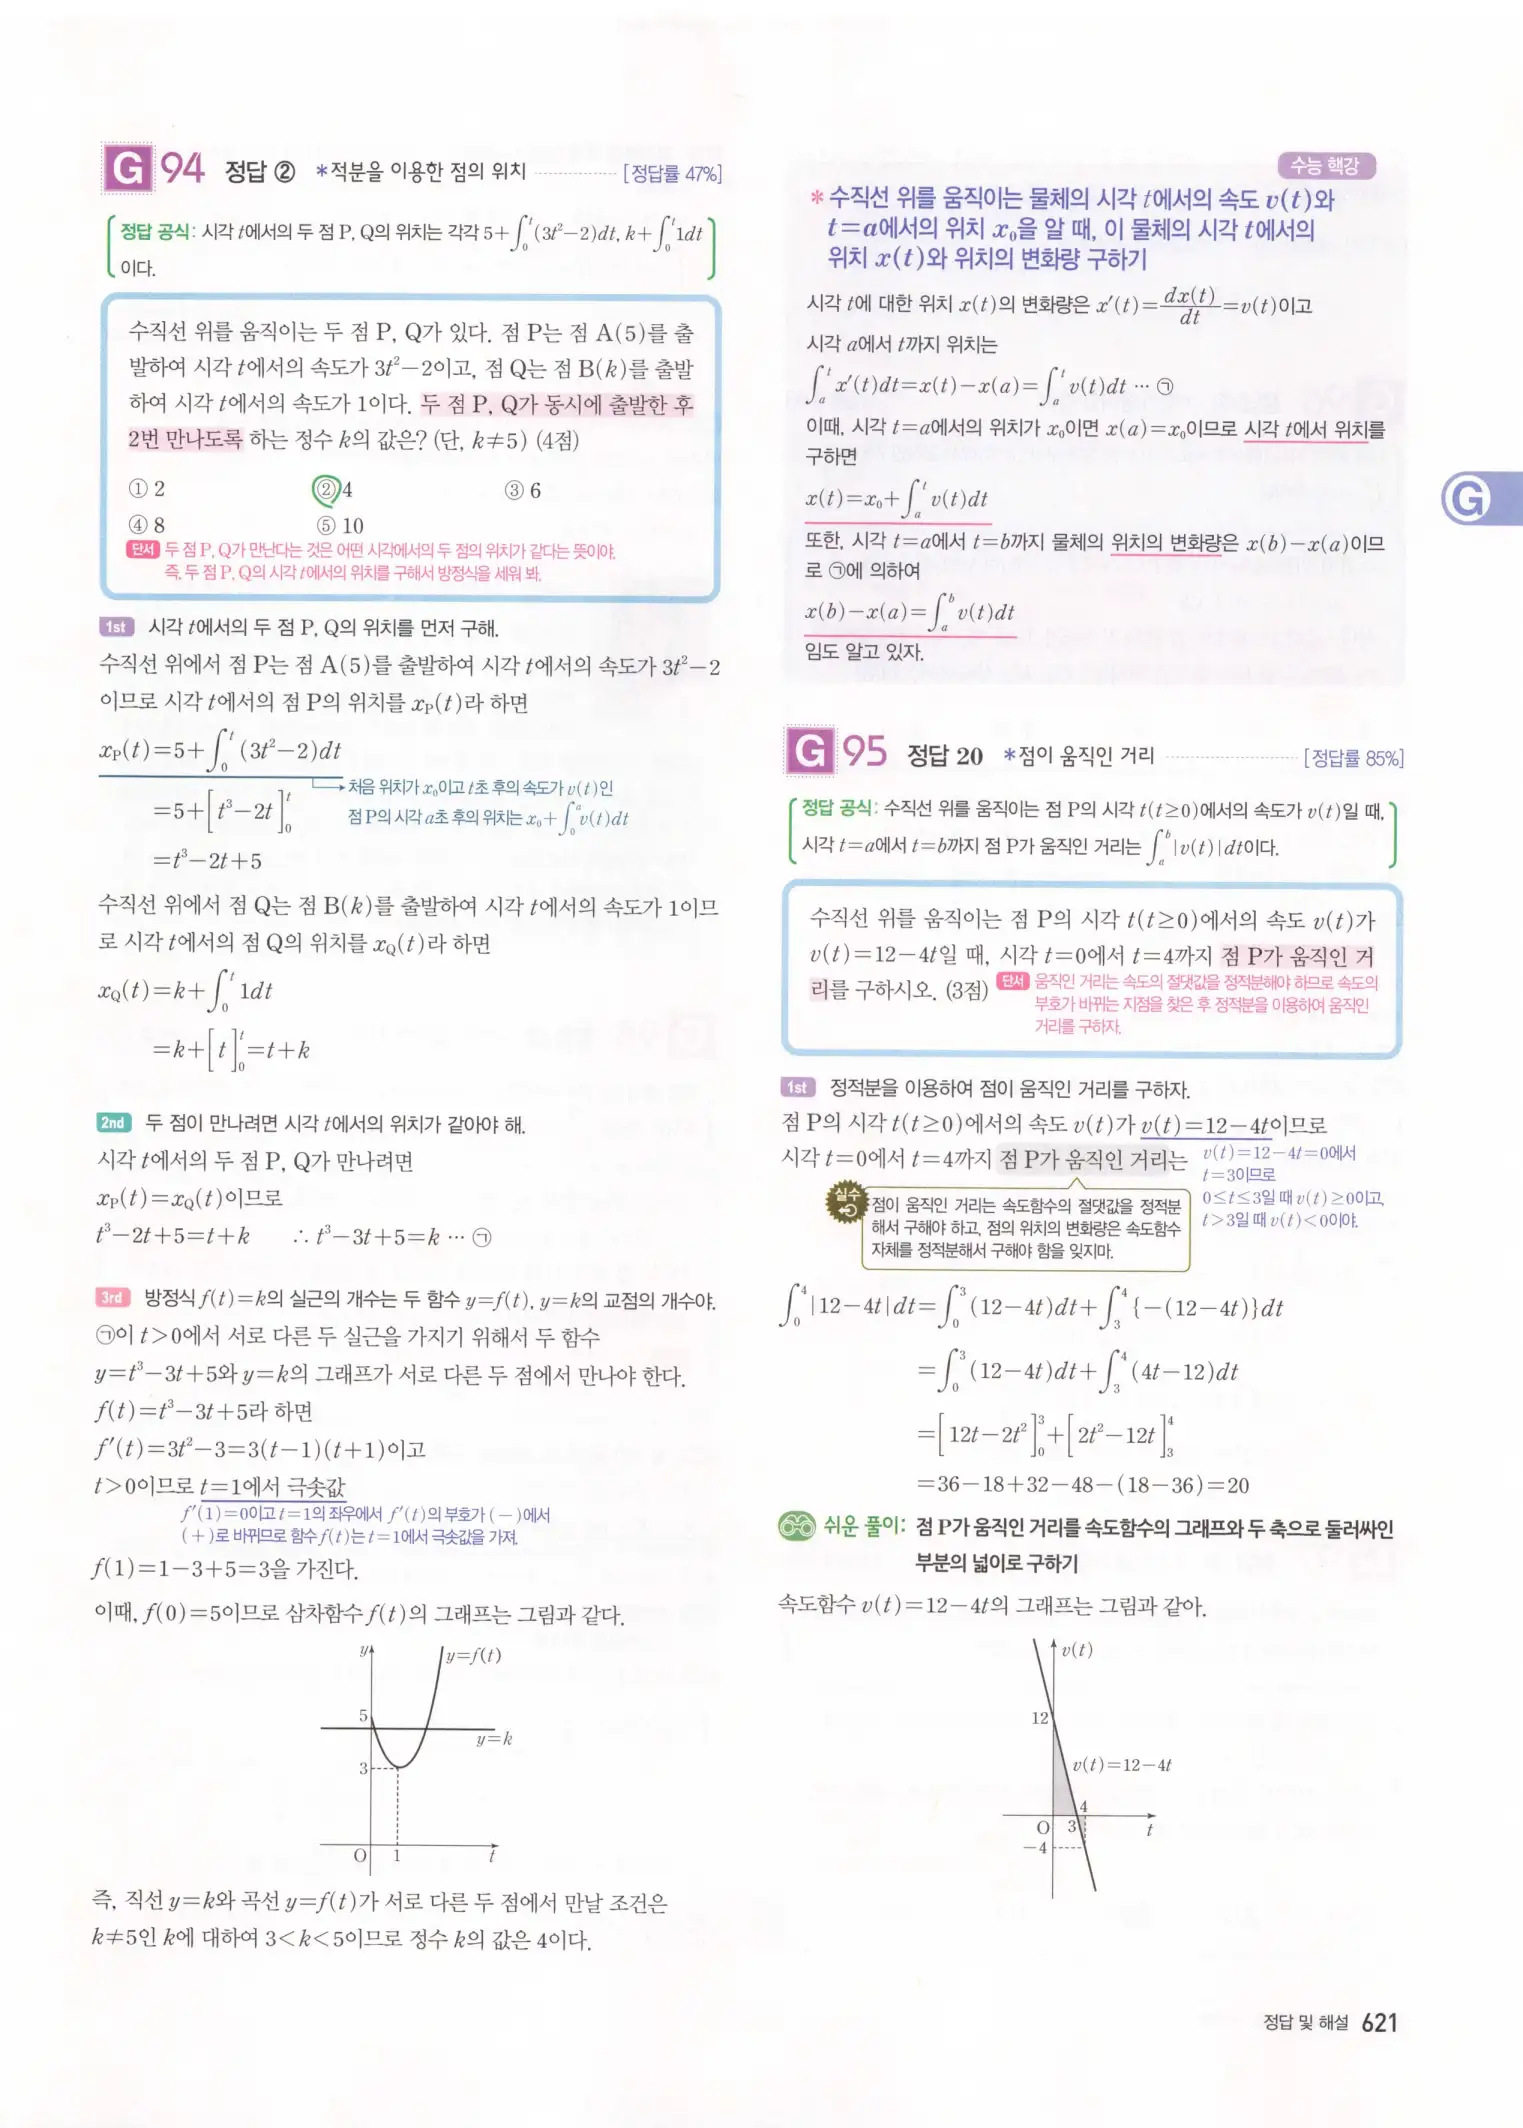 G 94 정답 ② *적분을 이용한 점의 위치 [정답률 47%]
정답 공식: 시각 t에서의 두 점 P, Q의 위치는 각각 5+∫₀ᵗ(3t²−2)dt, k+∫₀ᵗ1dt
이다.
수직선 위를 움직이는 두 점 P, Q가 있다. 점 P는 점 A(5)를 출
발하여 시각 t에서의 속도가 3t²−2이고, 점 Q는 점 B(k)를 출발
하여 시각 t에서의 속도가 1이다. 두 점 P, Q가 동시에 출발한 후
2번 만나도록 하는 정수 k의 값은? (단, k≠5) (4점)
① 2 ② 4 ③ 6
④ 8 ⑤ 10
단서 두 점 P, Q가 만난다는 것은 어떤 시각에서의 두 점의 위치가 같다는 뜻이야.
즉, 두 점 P, Q의 시각 t에서의 위치를 구해서 방정식을 세워 봐.
1st 시각 t에서의 두 점 P, Q의 위치를 먼저 구해.
수직선 위에서 점 P는 점 A(5)를 출발하여 시각 t에서의 속도가 3t²−2
이므로 시각 t에서의 점 P의 위치를 x_P(t)라 하면
x_P(t)=5+∫₀ᵗ(3t²−2)dt
처음 위치가 x₀이고 t초 후의 속도가 v(t)인
=5+[t³−2t]₀ᵗ
점 P의 시각 a초 후의 위치는 x₀+∫₀ᵃv(t)dt
=t³−2t+5
수직선 위에서 점 Q는 점 B(k)를 출발하여 시각 t에서의 속도가 1이므
로 시각 t에서의 점 Q의 위치를 x_Q(t)라 하면
x_Q(t)=k+∫₀ᵗ1dt
=k+[t]₀ᵗ=t+k
2nd 두 점이 만나려면 시각 t에서의 위치가 같아야 해.
시각 t에서의 두 점 P, Q가 만나려면
x_P(t)=x_Q(t)이므로
t³−2t+5=t+k ∴ t³−3t+5=k ⋯ ㉠
3rd 방정식 f(t)=k의 실근의 개수는 두 함수 y=f(t), y=k의 교점의 개수야.
㉠이 t>0에서 서로 다른 두 실근을 가지기 위해서 두 함수
y=t³−3t+5와 y=k의 그래프가 서로 다른 두 점에서 만나야 한다.
f(t)=t³−3t+5라 하면
f′(t)=3t²−3=3(t−1)(t+1)이고
t>0이므로 t=1에서 극솟값
f′(1)=0이고 t=1의 좌우에서 f′(t)의 부호가 (−)에서
(+)로 바뀌므로 함수 f(t)는 t=1에서 극솟값을 가져.
f(1)=1−3+5=3을 가진다.
이때, f(0)=5이므로 삼차함수 f(t)의 그래프는 그림과 같다.
y
y=f(t)
5
y=k
3
O 1 t
즉, 직선 y=k와 곡선 y=f(t)가 서로 다른 두 점에서 만날 조건은
k≠5인 k에 대하여 3<k<5이므로 정수 k의 값은 4이다.
수능 핵강
* 수직선 위를 움직이는 물체의 시각 t에서의 속도 v(t)와
t=a에서의 위치 x₀을 알 때, 이 물체의 시각 t에서의
위치 x(t)와 위치의 변화량 구하기
시각 t에 대한 위치 x(t)의 변화량은 x′(t)=dx(t)/dt=v(t)이고
시각 a에서 t까지 위치는
∫ₐᵗx′(t)dt=x(t)−x(a)=∫ₐᵗv(t)dt ⋯ ㉠
이때, 시각 t=a에서의 위치가 x₀이면 x(a)=x₀이므로 시각 t에서 위치를
구하면
x(t)=x₀+∫ₐᵗv(t)dt
또한, 시각 t=a에서 t=b까지 물체의 위치의 변화량은 x(b)−x(a)이므
로 ㉠에 의하여
x(b)−x(a)=∫ₐᵇv(t)dt
임도 알고 있자.
G
G 95 정답 20 *점이 움직인 거리 [정답률 85%]
정답 공식: 수직선 위를 움직이는 점 P의 시각 t(t≥0)에서의 속도가 v(t)일 때,
시각 t=a에서 t=b까지 점 P가 움직인 거리는 ∫ₐᵇ|v(t)|dt이다.
수직선 위를 움직이는 점 P의 시각 t(t≥0)에서의 속도 v(t)가
v(t)=12−4t일 때, 시각 t=0에서 t=4까지 점 P가 움직인 거
리를 구하시오. (3점) 단서 움직인 거리는 속도의 절댓값을 정적분해야 하므로 속도의
부호가 바뀌는 지점을 찾은 후 정적분을 이용하여 움직인
거리를 구하자.
1st 정적분을 이용하여 점이 움직인 거리를 구하자.
점 P의 시각 t(t≥0)에서의 속도 v(t)가 v(t)=12−4t이므로
시각 t=0에서 t=4까지 점 P가 움직인 거리는
v(t)=12−4t=0에서
t=3이므로
0≤t≤3일 때 v(t)≥0이고,
t>3일 때 v(t)<0이야.
실수 점이 움직인 거리는 속도함수의 절댓값을 정적분
해서 구해야 하고, 점의 위치의 변화량은 속도함수
자체를 정적분해서 구해야 함을 잊지마.
∫₀⁴|12−4t|dt=∫₀³(12−4t)dt+∫₃⁴{−(12−4t)}dt
=∫₀³(12−4t)dt+∫₃⁴(4t−12)dt
=[12t−2t²]₀³+[2t²−12t]₃⁴
=36−18+32−48−(18−36)=20
쉬운 풀이: 점 P가 움직인 거리를 속도함수의 그래프와 두 축으로 둘러싸인
부분의 넓이로 구하기
속도함수 v(t)=12−4t의 그래프는 그림과 같아.
v(t)
12
v(t)=12−4t
4
O 3 t
−4
정답 및 해설 621